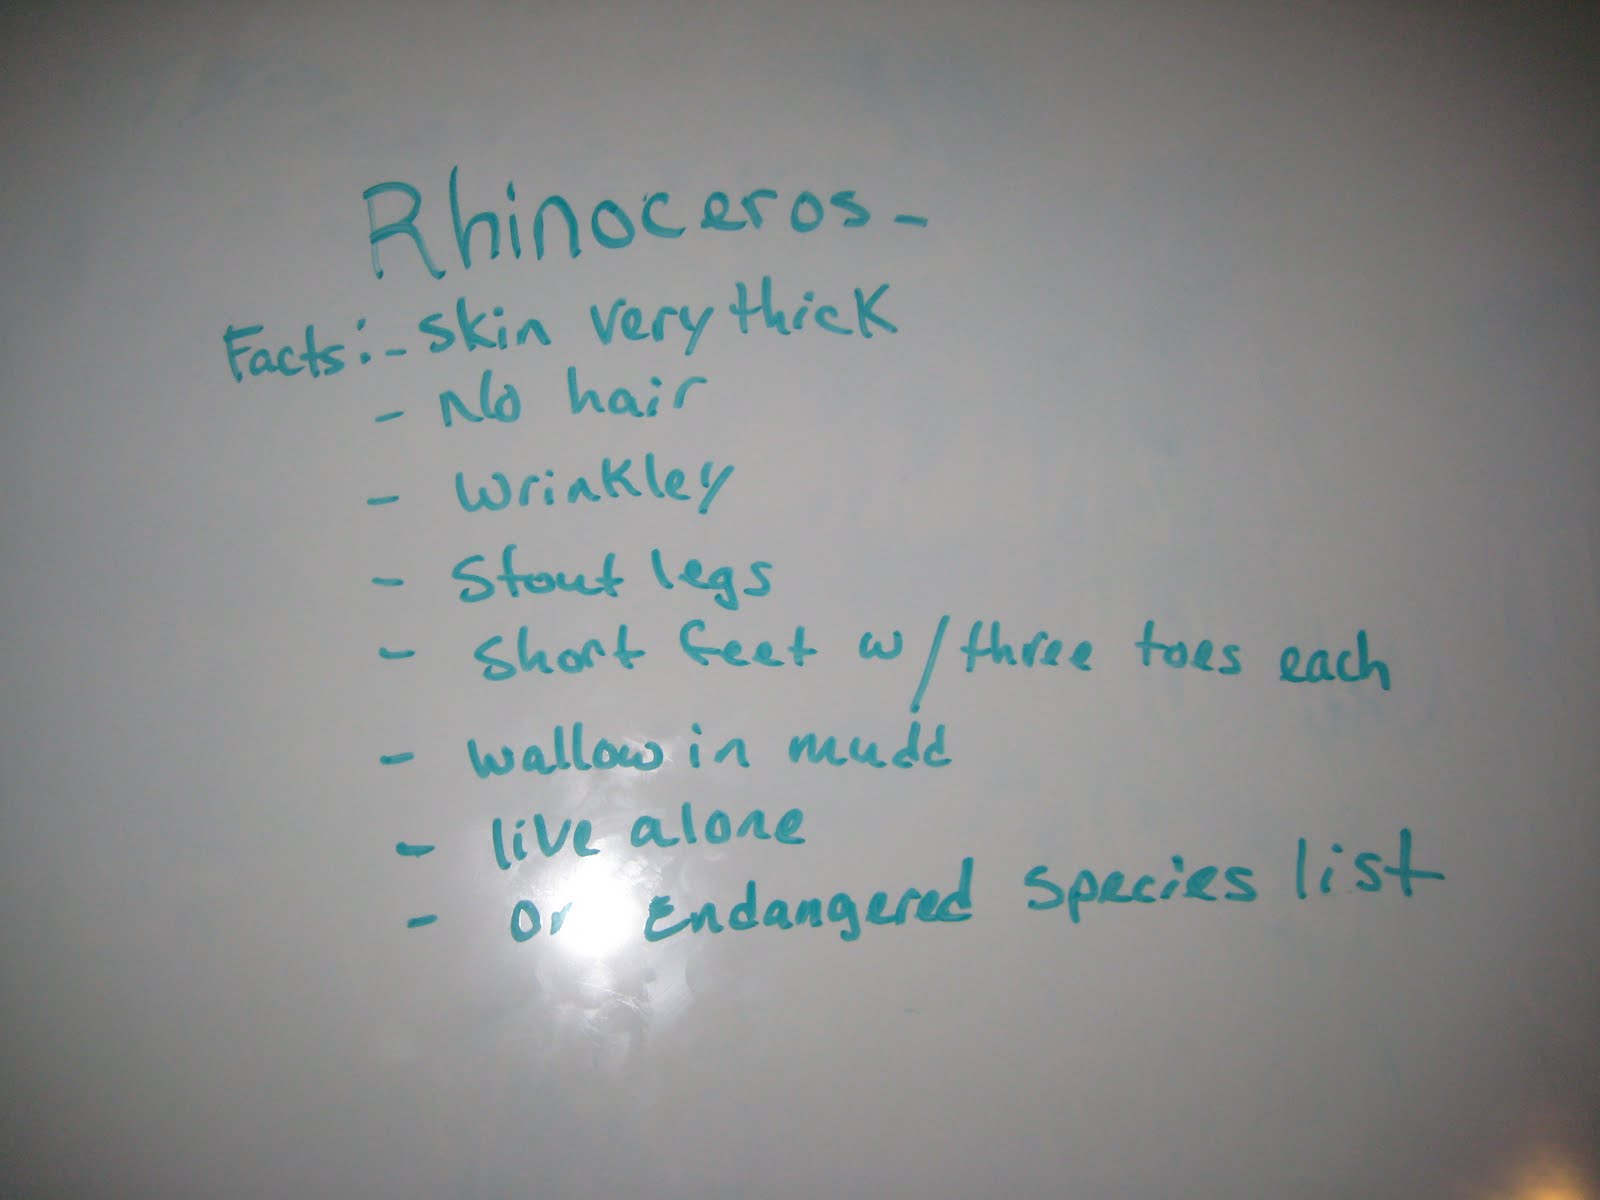 Rhinoceros -
Facts: - Skin very thick
- No hair
- wrinkley
- Stout legs
- Short feet w/three toes each
- wallow in mudd
- live alone
- on Endangered species list